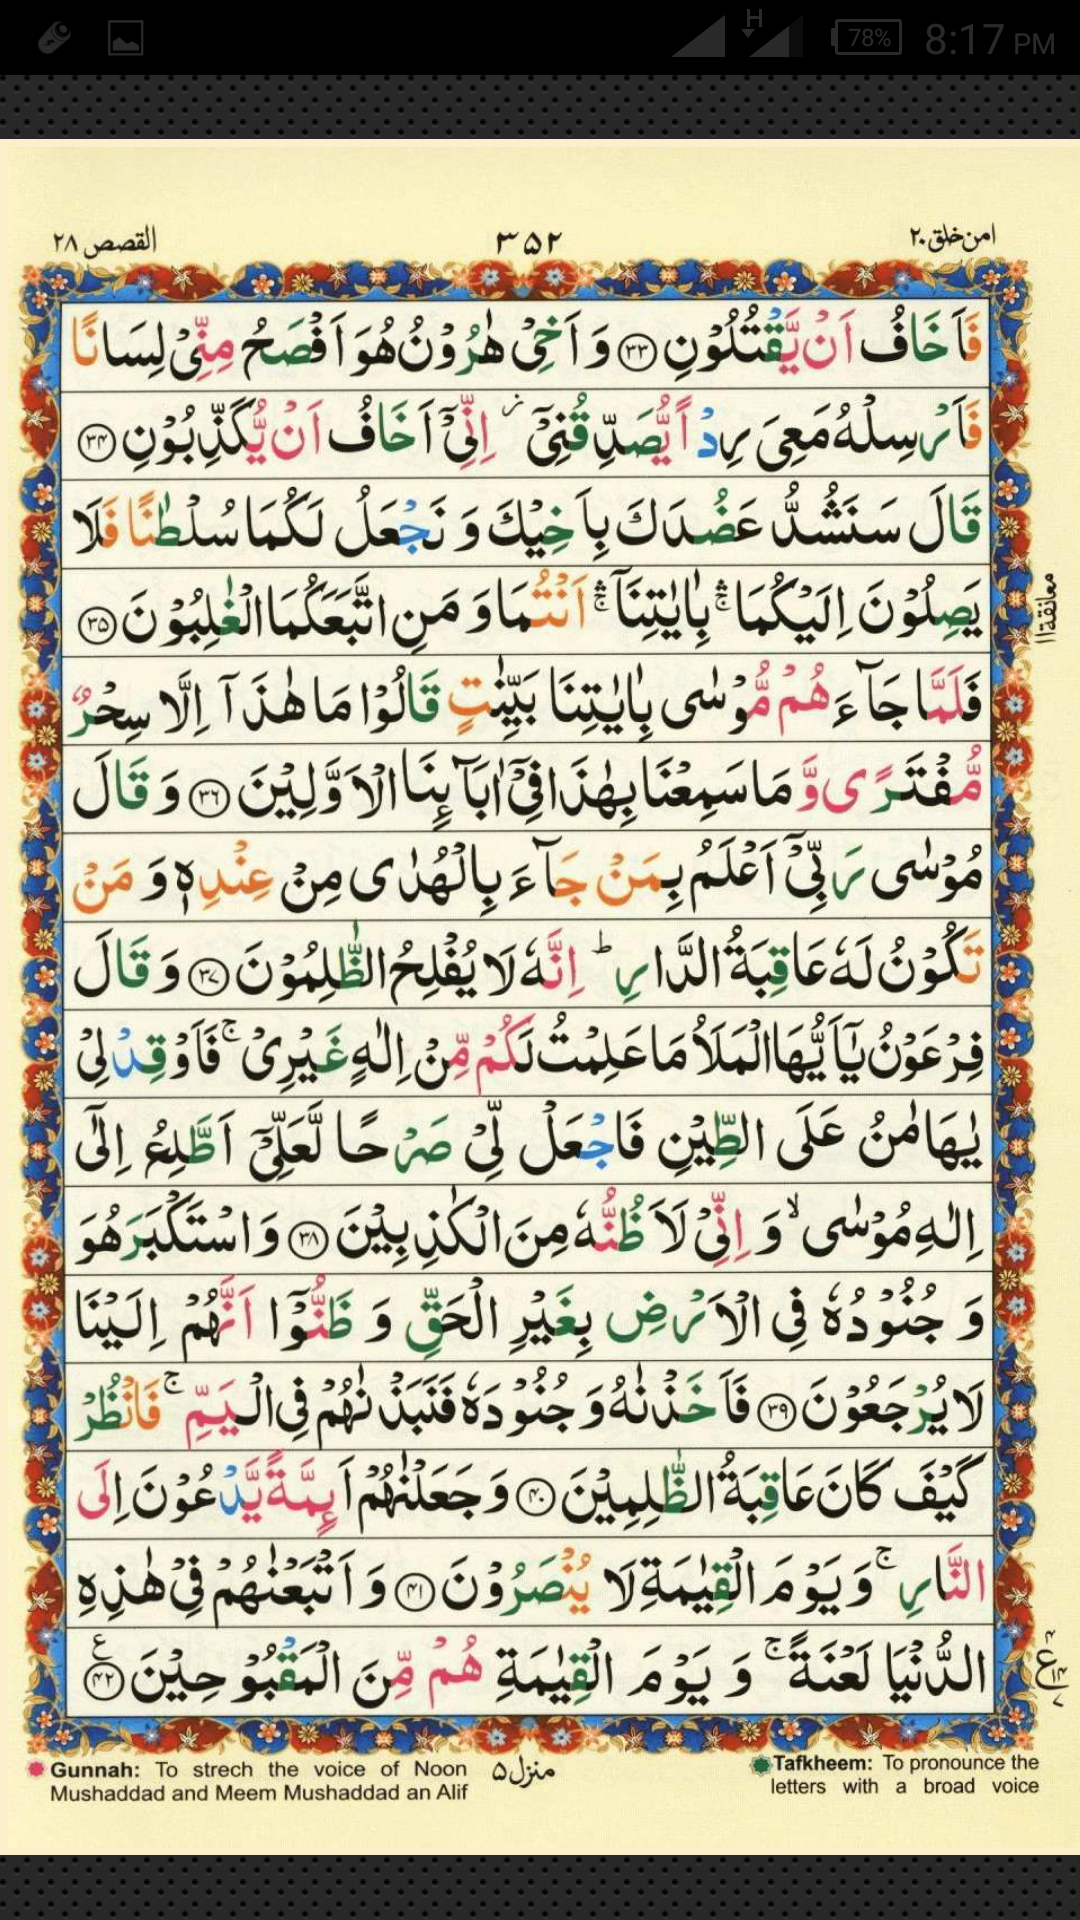 H 78% 8:17 PM
القصص ۲۸ ۳۵۲ امن خلق ۲۰
فَاَخَافُ اَنْ يَّقْتُلُوْنِ ﴿۳۳﴾ وَ اَخِیْ هٰرُوْنُ هُوَ اَفْصَحُ مِنِّیْ لِسَانًا
فَاَرْسِلْهُ مَعِیَ رِدْاً يُّصَدِّقُنِیْۤ ز اِنِّیْۤ اَخَافُ اَنْ يُّكَذِّبُوْنِ ﴿۳۴﴾
قَالَ سَنَشُدُّ عَضُدَكَ بِاَخِيْكَ وَ نَجْعَلُ لَكُمَا سُلْطٰنًا فَلَا
يَصِلُوْنَ اِلَيْكُمَا ۛۚ بِاٰيٰتِنَاۤ ۛۚ اَنْتُمَا وَ مَنِ اتَّبَعَكُمَا الْغٰلِبُوْنَ ﴿۳۵﴾
معانقة ۱۱
فَلَمَّا جَآءَهُمْ مُّوْسٰی بِاٰيٰتِنَا بَيِّنٰتٍ قَالُوْا مَا هٰذَاۤ اِلَّا سِحْرٌ
مُّفْتَرًی وَّ مَا سَمِعْنَا بِهٰذَا فِیْۤ اٰبَآئِنَا الْاَوَّلِيْنَ ﴿۳۶﴾ وَ قَالَ
مُوْسٰی رَبِّیْۤ اَعْلَمُ بِمَنْ جَآءَ بِالْهُدٰی مِنْ عِنْدِهٖ وَ مَنْ
تَكُوْنُ لَهٗ عَاقِبَةُ الدَّارِ ؕ اِنَّهٗ لَا يُفْلِحُ الظّٰلِمُوْنَ ﴿۳۷﴾ وَ قَالَ
فِرْعَوْنُ يٰۤاَيُّهَا الْمَلَاُ مَا عَلِمْتُ لَكُمْ مِّنْ اِلٰهٍ غَيْرِیْ ۚ فَاَوْقِدْ لِیْ
يٰهَامٰنُ عَلَی الطِّيْنِ فَاجْعَلْ لِّیْ صَرْحًا لَّعَلِّیْۤ اَطَّلِعُ اِلٰۤی
اِلٰهِ مُوْسٰی ۙ وَ اِنِّیْ لَاَظُنُّهٗ مِنَ الْكٰذِبِيْنَ ﴿۳۸﴾ وَ اسْتَكْبَرَ هُوَ
وَ جُنُوْدُهٗ فِی الْاَرْضِ بِغَيْرِ الْحَقِّ وَ ظَنُّوْۤا اَنَّهُمْ اِلَيْنَا
لَا يُرْجَعُوْنَ ﴿۳۹﴾ فَاَخَذْنٰهُ وَ جُنُوْدَهٗ فَنَبَذْنٰهُمْ فِی الْيَمِّ ۚ فَانْظُرْ
كَيْفَ كَانَ عَاقِبَةُ الظّٰلِمِيْنَ ﴿۴۰﴾ وَ جَعَلْنٰهُمْ اَئِمَّةً يَّدْعُوْنَ اِلَی
النَّارِ ۚ وَ يَوْمَ الْقِيٰمَةِ لَا يُنْصَرُوْنَ ﴿۴۱﴾ وَ اَتْبَعْنٰهُمْ فِیْ هٰذِهِ
الدُّنْيَا لَعْنَةً ۚ وَ يَوْمَ الْقِيٰمَةِ هُمْ مِّنَ الْمَقْبُوْحِيْنَ ﴿۴۲﴾ ع
Gunnah: To strech the voice of Noon
Mushaddad and Meem Mushaddad an Alif
منزل ۵
Tafkheem: To pronounce the
letters with a broad voice